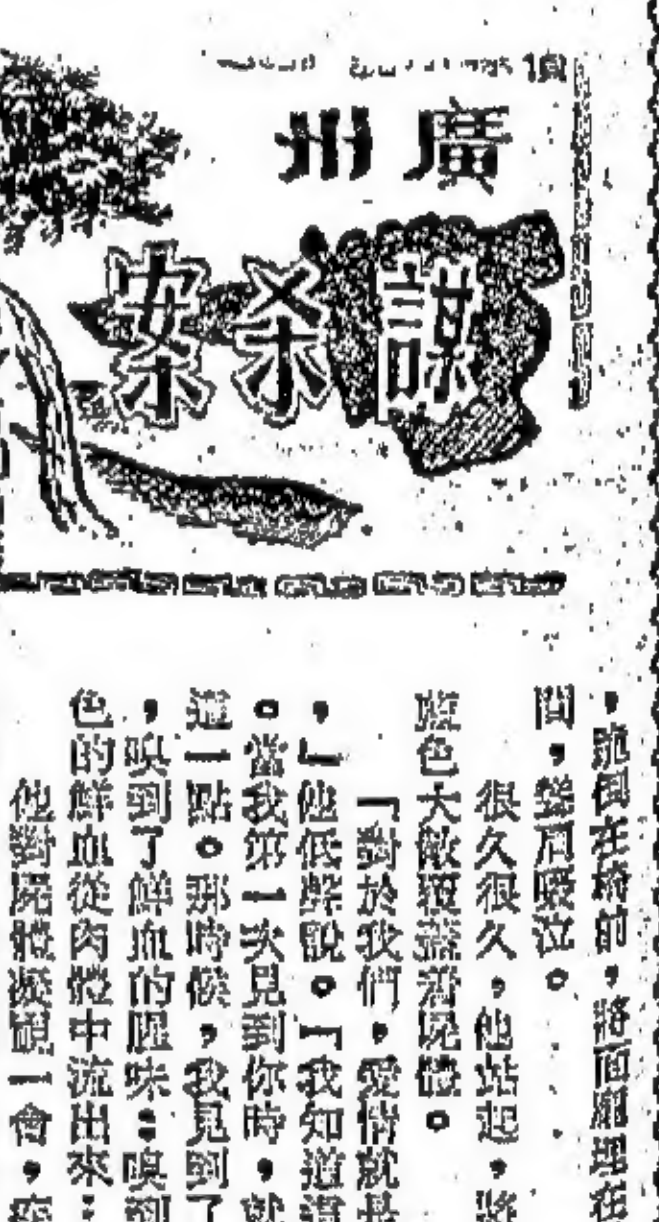 廣州
謀杀案
，跪倒在椅前，將面龐埋在
間，聳肩啜泣。
很久很久，他站起，將
藍色大氅覆蓋着屍體。
「對於我們，愛情就是
，」他低聲說。「我知道這
。當我第一次見到你時，就
這一點。那時候，我見到了
，嗅到了鮮血的腥味：嗅到
色的鮮血從肉體中流出來：
他對屍體凝視一會，